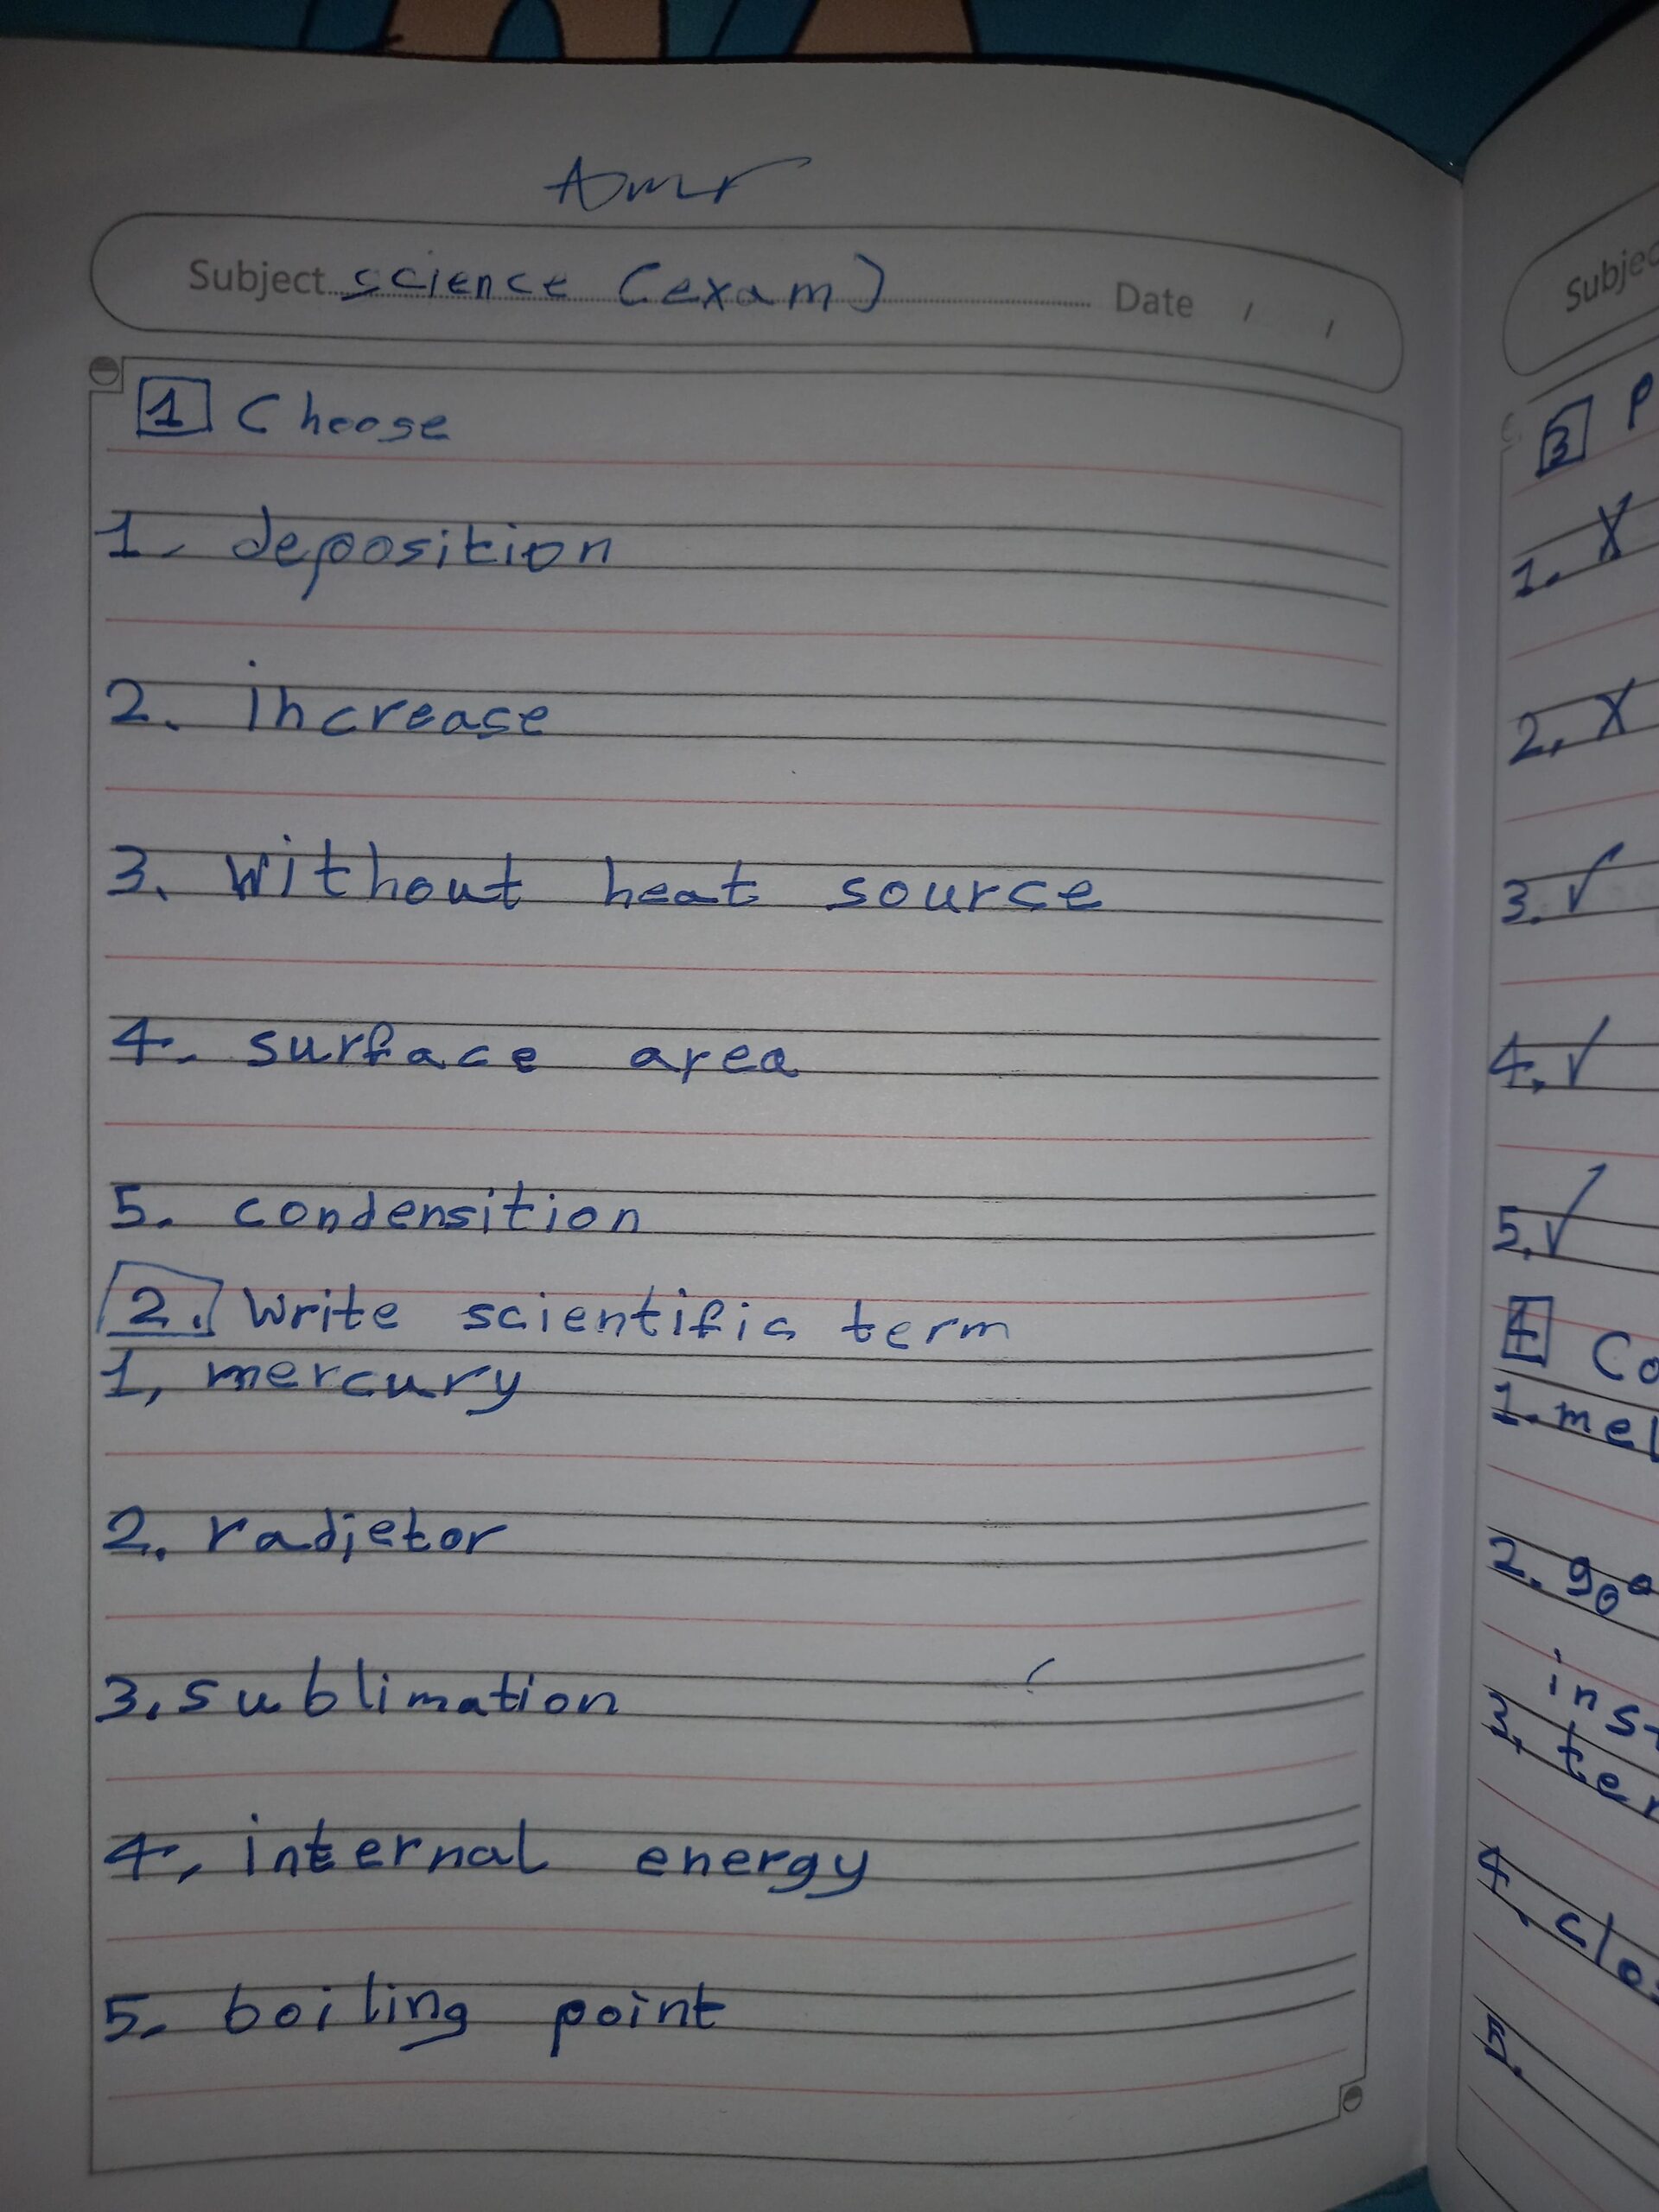 Amr
Subject science (exam) Date / /
1 Choose
1. deposition
2. increase
3. without heat source
4. surface area
5. condensition
2. Write scientific term
1, mercury
2. radietor
3. sublimation
4, internal energy
5. boiling point
3
1. X
2, X
3. ✓
4. ✓
5. ✓
4
1.
2.
3.
4.
5.